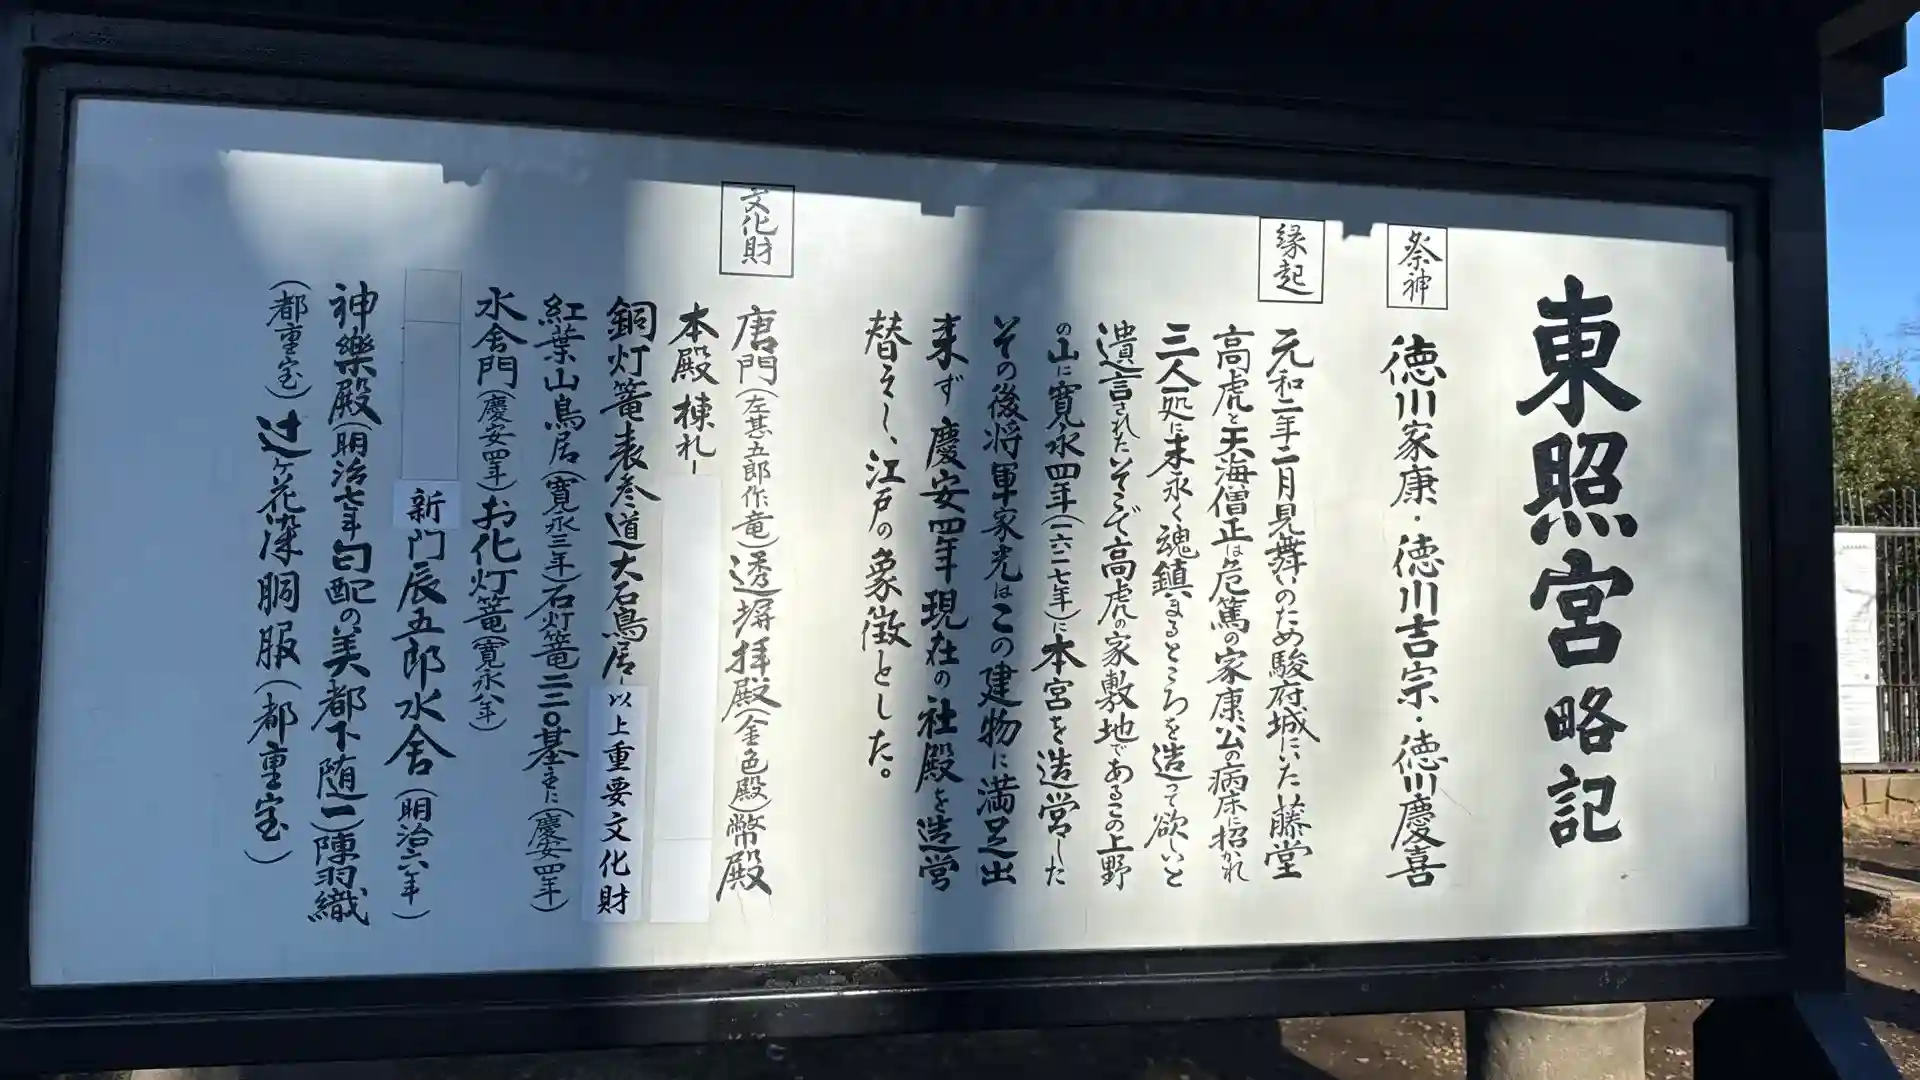 東照宮略記
祭神
徳川家康・徳川吉宗・徳川慶喜
縁起
元和二年二月見舞いのため駿府城にいた藤堂
高虎と天海僧正は危篤の家康公の病床に招かれ
三人一処に末永く魂鎮まるところを造って欲しいと
遺言されたそこで高虎の家敷地であるこの上野
の山に寛永四年(一六二七年)に本宮を造営した
その後将軍家光はこの建物に満足出
来ず慶安四年現在の社殿を造営
替えし、江戸の象徴とした。
文化財
唐門(左甚五郎作竜)透塀拝殿(金色殿)幣殿
本殿棟札
銅灯篭表参道大石鳥居 以上重要文化財
紅葉山鳥居(寛永三年)石灯篭二二〇基主に(慶安四年)
水舎門(慶安四年)お化灯篭(寛永八年)
新門辰五郎水舎(明治六年)
神樂殿(明治七年匂配の美都下随一)陣羽織
(都重宝)辻ヶ花染胴服(都重宝)